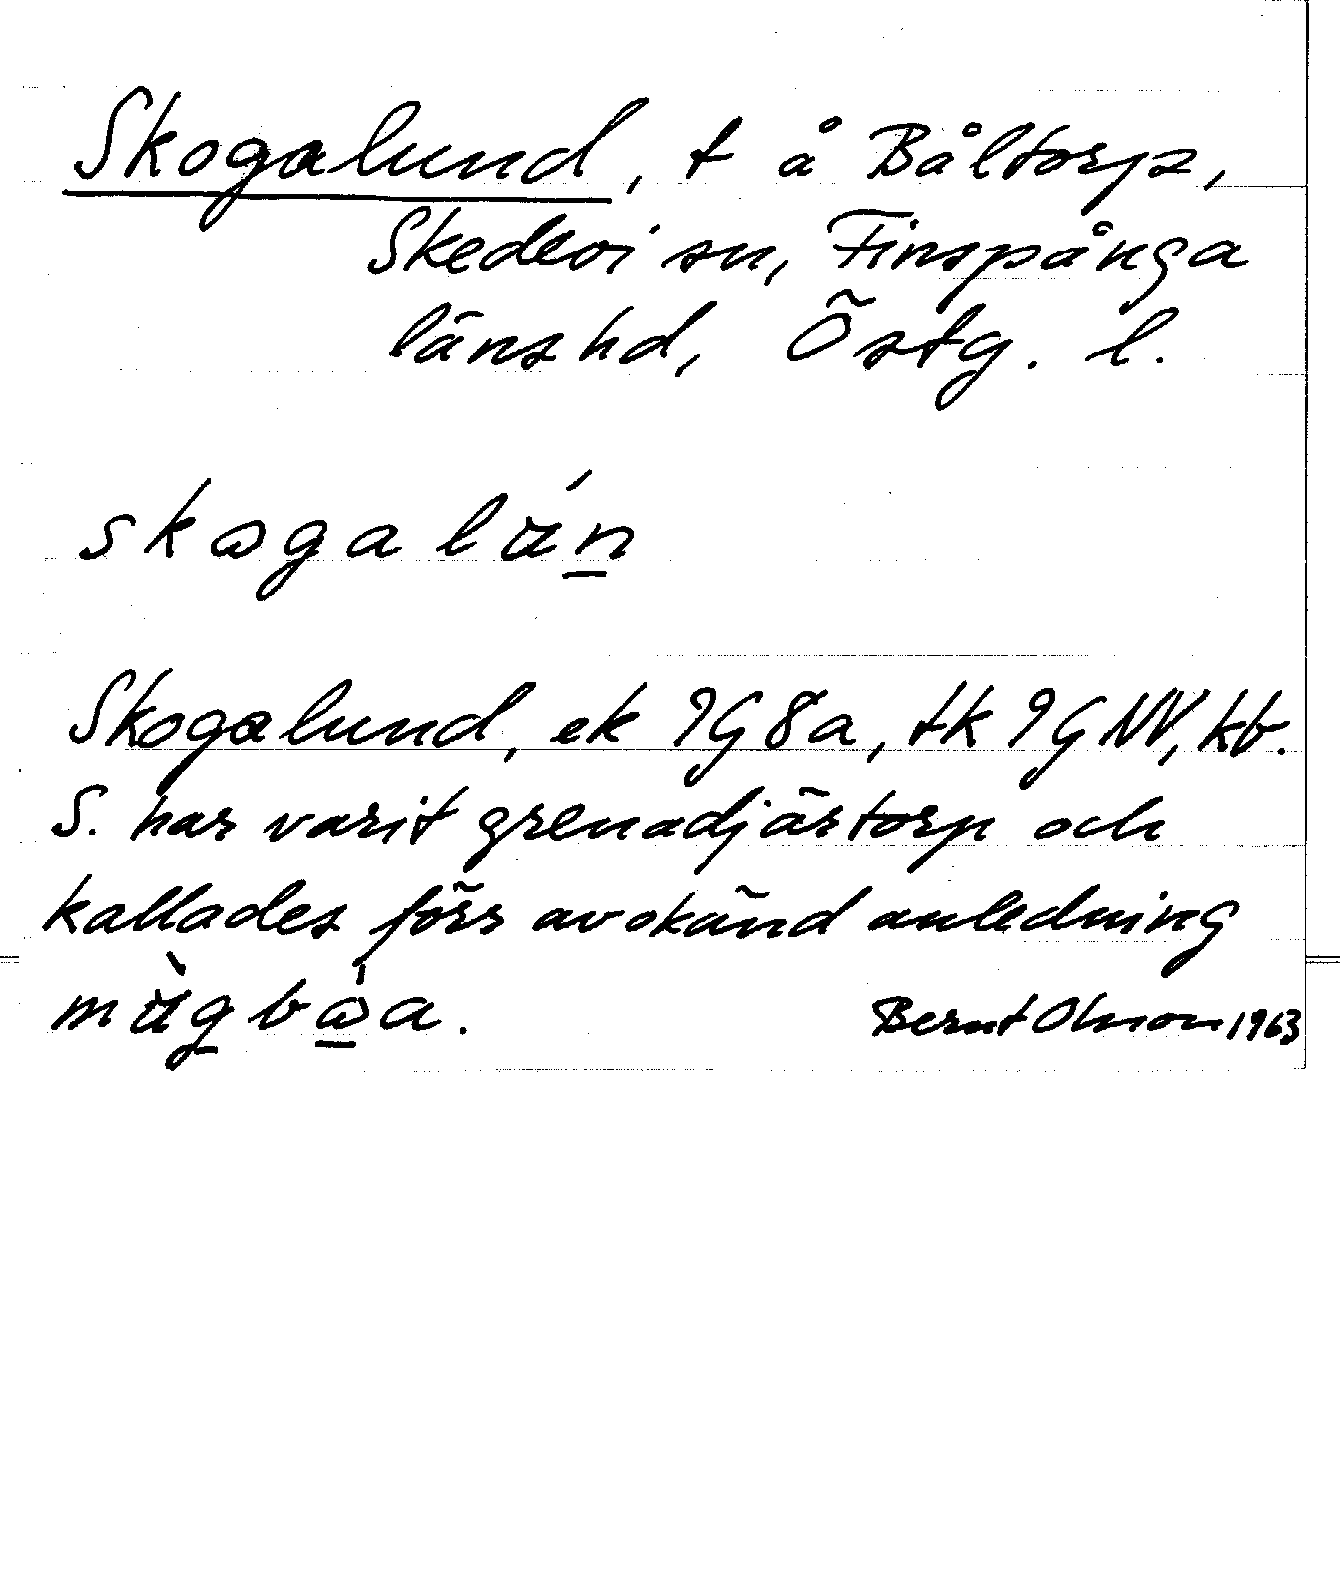 Skogalund, t å Båltorp,
Skedevi sn, Finspånga
länshd, Östg. l.
skogalún
Skogalund, ek 9G8a, tk 9GNV, kb.
S. har varit grenadjärtorp och
kallades förr av okänd anledning
Bernt Olsson 1963